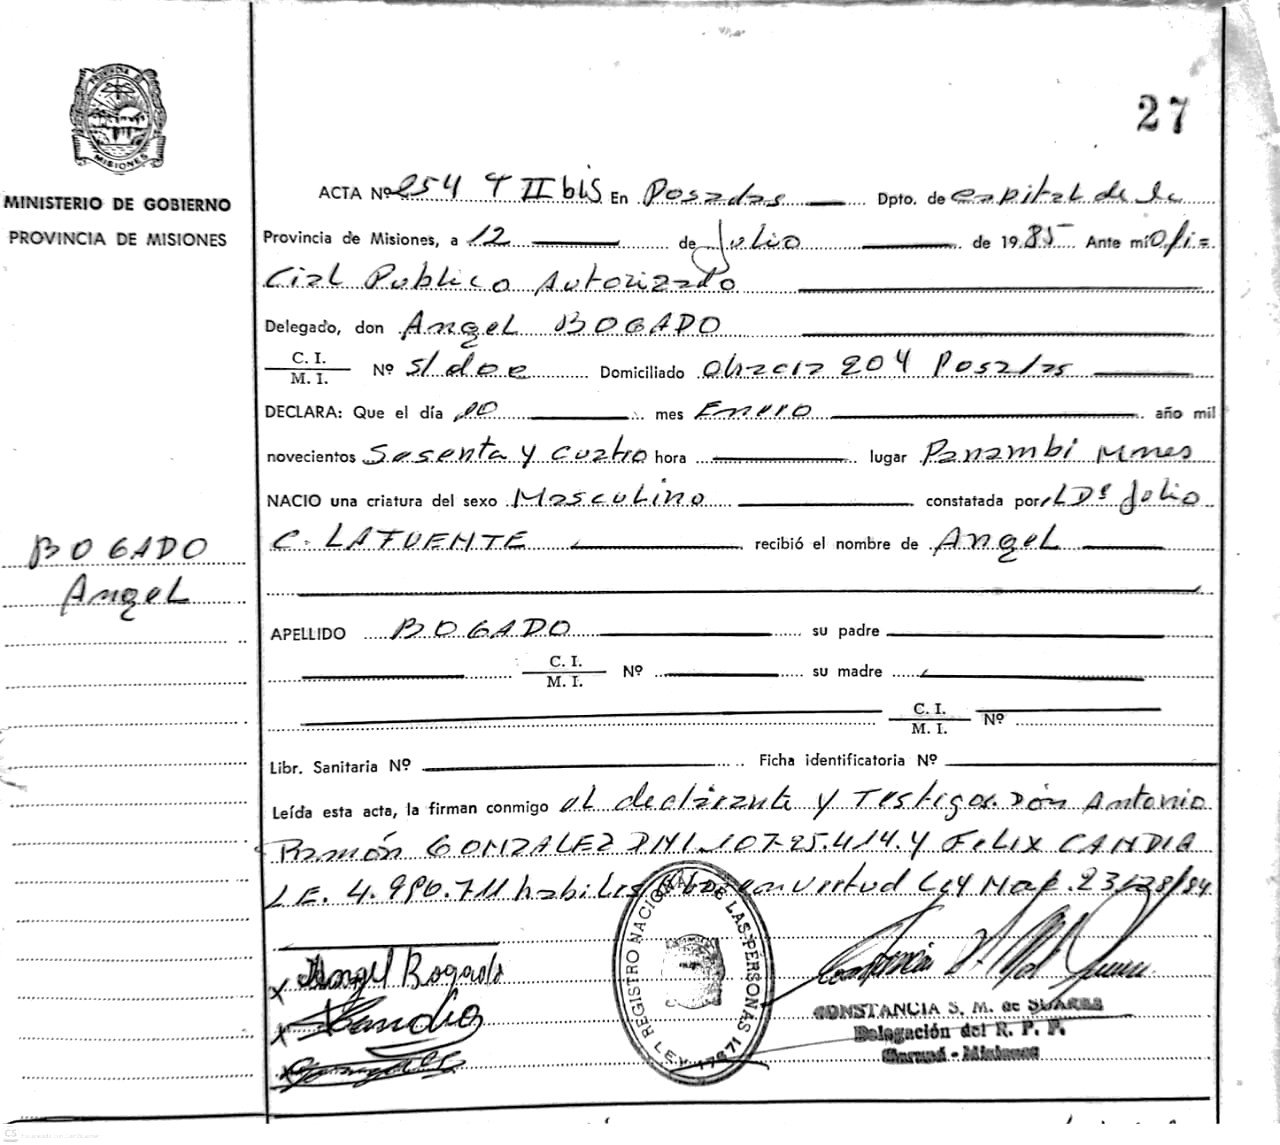 27
PROVINCIA DE
MISIONES
MINISTERIO DE GOBIERNO
PROVINCIA DE MISIONES
ACTA Nº 254 T II bis En Posadas Dpto. de Capital de la
Provincia de Misiones, a 12 de Julio de 1985 Ante mi Ofi=
cial Publico Autorizado
Delegado, don Angel BOGADO
C. I.
M. I. Nº s/doc Domiciliado 204 Posadas
DECLARA: Que el día mes Enero año mil
novecientos Sesenta y Cuatro hora lugar Panambi Mnes
NACIO una criatura del sexo Masculino constatada por Julio
C. LAFUENTE recibió el nombre de Angel
BOGADO
Angel
APELLIDO BOGADO su padre
C. I.
M. I. Nº su madre
C. I.
M. I. Nº
Libr. Sanitaria Nº Ficha identificatoria Nº
Leída esta acta, la firman conmigo el declarante y Testigos Don Antonio
Ramón GONZALEZ DNI 107.25.414. Y Felix CANDIA
L.E. habiles en virtud Ley
Angel Bogado
REGISTRO NACIONAL DE LAS PERSONAS
LEY 17671
CONSTANCIA S. M. de SUARES
Delegación del R. P. P.
Garupá - Misiones
CS